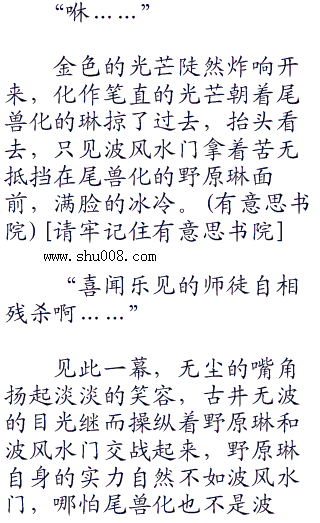 “咻……”
金色的光芒陡然炸响开
来，化作笔直的光芒朝着尾
兽化的琳掠了过去，抬头看
去，只见波风水门拿着苦无
抵挡在尾兽化的野原琳面
前，满脸的冰冷。(有意思书
院)[请牢记住有意思书院]
www.shu008.com
“喜闻乐见的师徒自相
残杀啊……”
见此一幕，无尘的嘴角
扬起淡淡的笑容，古井无波
的目光继而操纵着野原琳和
波风水门交战起来，野原琳
自身的实力自然不如波风水
门，哪怕尾兽化也不是波